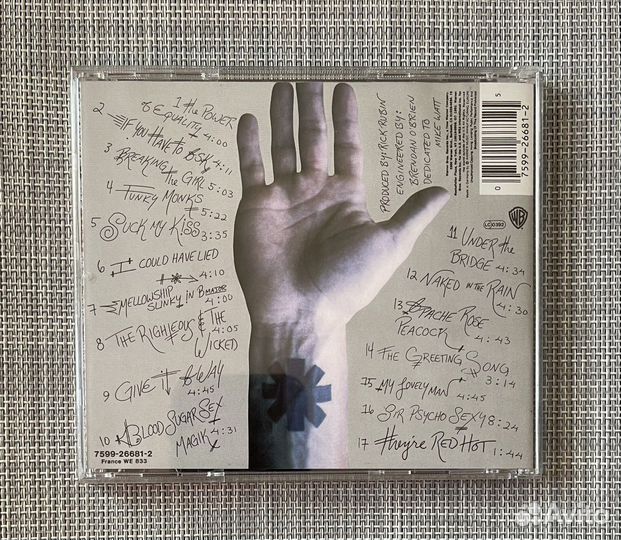 1 The POWER
of EQUALITY 4:00
2 IF YOU HAVE TO ASK 4:11
3 BREAKING
The GIRL 5:03
4 FUNKY MONKS
5:22
5 SUCK MY KISS 3:35
6 I COULD HAVE LIED
4:10
7 MELLOWSHIP
SLINKY IN B MAJOR
4:00
8 THE RIGHTEOUS & THE
WICKED 4:05
9 GIVE IT AWAY
4:45
10 BLOOD SUGAR SEX
MAGIK 4:31
7599-26681-2
France WE 833
PRODUCED BY: RICK RUBIN
ENGINEERED BY:
BRENDAN O'BRIEN
DEDICATED TO
MIKE WATT
7599-26681-2
0
5
LC 0392
WB
11 UNDER the
BRIDGE 4:34
12 NAKED IN the RAIN
4:30
13 APACHE ROSE
PEACOCK 4:43
14 THE GREETING SONG
3:14
15 MY LOVELY MAN
4:45
16 SIR PSYCHO SEXY 8:24
17 They're RED HOT
1:44
Avito